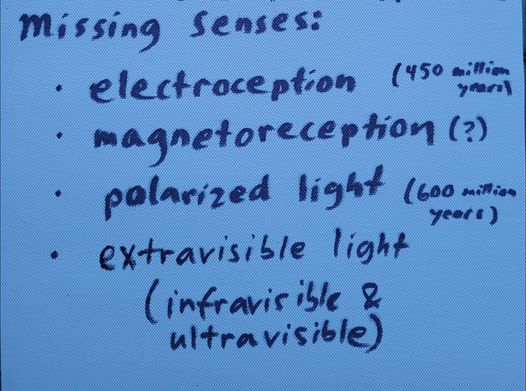 Missing Senses:
• electroception (450 million
years)
• magnetoreception (?)
• polarized light (600 million
years)
• extravisible light
(infravisible &
ultravisible)